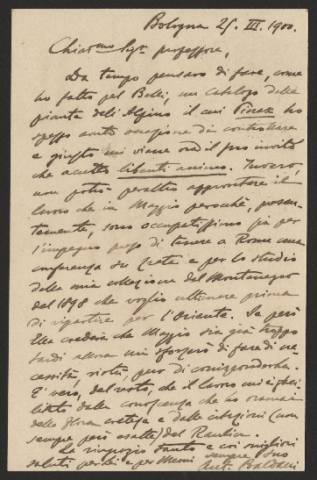 Bologna 25. III. 1900.
Chiar.mo Sig.r professore,
Da tempo pensavo di fare, come
ho fatto pel Belli, un catalogo delle
piante dell'Alpino il cui Pinax ho
spesso avuto occasione di controllare
e giusto mi viene ora il suo invito
che accetto libenti animo. Invero,
non potrei peraltro approntare il
lavoro che in Maggio perochè, presen-
temente, sono occupatissimo già per
l'impegno preso di tenere a Roma una
conferenza su Creta e per lo studio
della mia collezione del Montenegro
del 1898 che voglio ultimare prima
di ripartire per l'Oriente. Se però
Ella credesse che Maggio sia già troppo
tardi allora mi sforzerò di fare di ne-
cessità virtù pur di
È vero, del resto, che il lavoro mi è faci-
litato dalla conoscenza che ho oramai
della flora cretese e dalle citazioni (non
sempre però esatte) del Raulin.
La ringrazio tanto e coi migliori
saluti per Lei e per sempre suo
Ant. Baldacci